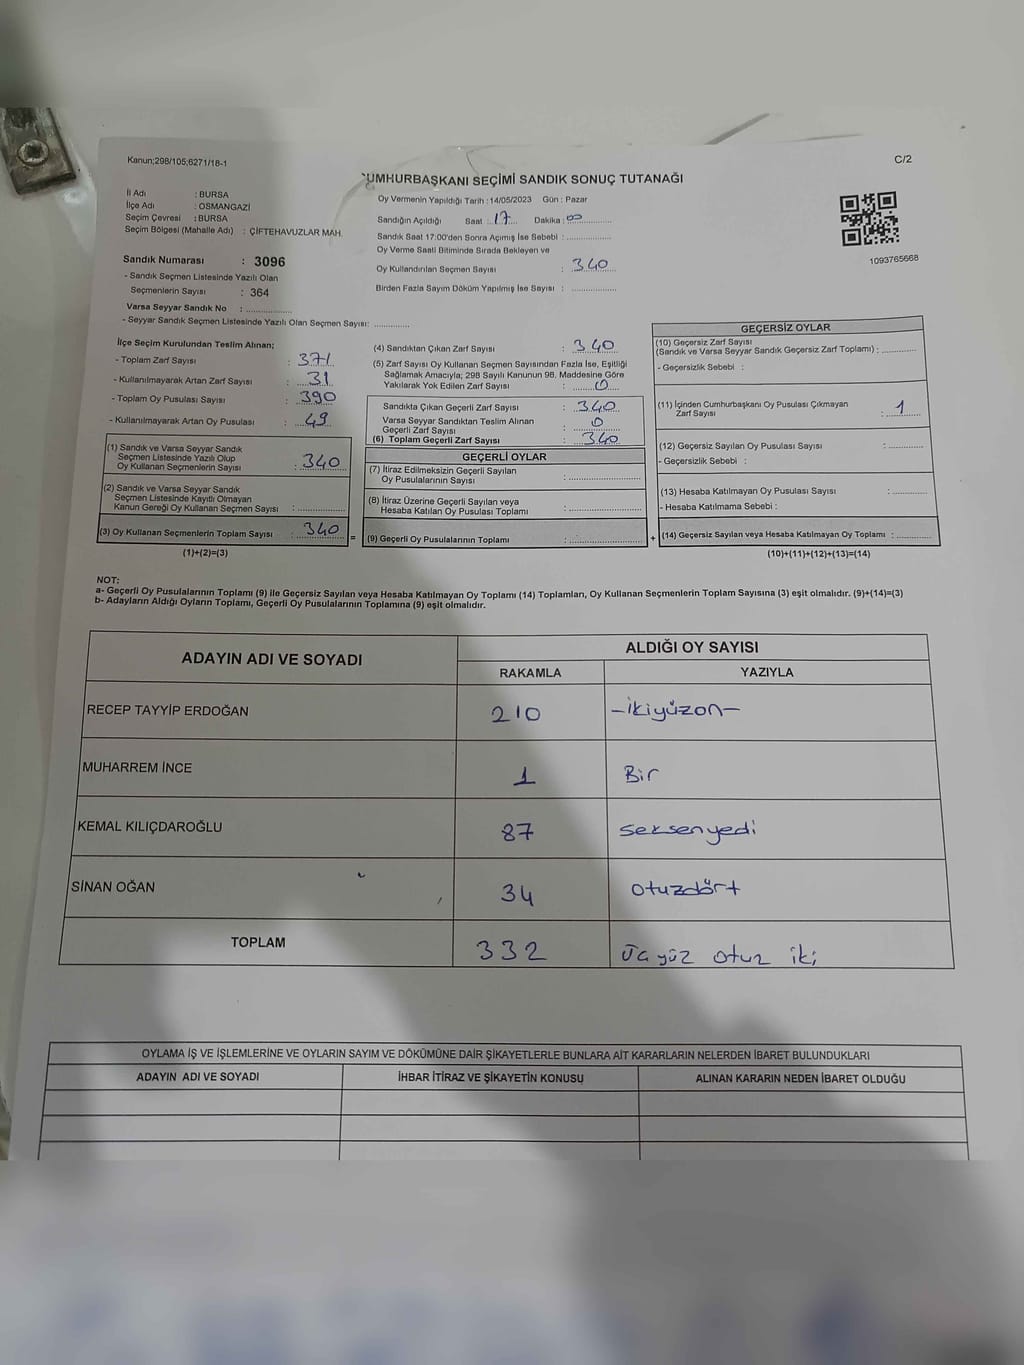 Kanun;298/105;6271/18-1
C/2
CUMHURBAŞKANI SEÇİMİ SANDIK SONUÇ TUTANAĞI
İl Adı : BURSA
İlçe Adı : OSMANGAZİ
Seçim Çevresi : BURSA
Seçim Bölgesi (Mahalle Adı) : ÇİFTEHAVUZLAR MAH.
Oy Vermenin Yapıldığı Tarih : 14/05/2023 Gün : Pazar
Sandığın Açıldığı Saat : 17 Dakika : 00
Sandık Saat 17:00'den Sonra Açımış İse Sebebi :
Oy Verme Saati Bitiminde Sırada Bekleyen ve
Oy Kullandırılan Seçmen Sayısı : 340
Birden Fazla Sayım Döküm Yapılmış İse Sayısı :
1093765668
Sandık Numarası : 3096
- Sandık Seçmen Listesinde Yazılı Olan
Seçmenlerin Sayısı : 364
Varsa Seyyar Sandık No :
- Seyyar Sandık Seçmen Listesinde Yazılı Olan Seçmen Sayısı:
İlçe Seçim Kurulundan Teslim Alınan;
- Toplam Zarf Sayısı : 371
- Kullanılmayarak Artan Zarf Sayısı : 31
- Toplam Oy Pusulası Sayısı : 390
- Kullanılmayarak Artan Oy Pusulası : 49
(1) Sandık ve Varsa Seyyar Sandık
Seçmen Listesinde Yazılı Olup
Oy Kullanan Seçmenlerin Sayısı : 340
(2) Sandık ve Varsa Seyyar Sandık
Seçmen Listesinde Kayıtlı Olmayan
Kanun Gereği Oy Kullanan Seçmen Sayısı :
(3) Oy Kullanan Seçmenlerin Toplam Sayısı : 340
(1)+(2)=(3)
(4) Sandıktan Çıkan Zarf Sayısı : 340
(5) Zarf Sayısı Oy Kullanan Seçmen Sayısından Fazla İse, Eşitliği
Sağlamak Amacıyla; 298 Sayılı Kanunun 98. Maddesine Göre
Yakılarak Yok Edilen Zarf Sayısı : 0
Sandıkta Çıkan Geçerli Zarf Sayısı : 340
Varsa Seyyar Sandıktan Teslim Alınan
Geçerli Zarf Sayısı : 0
(6) Toplam Geçerli Zarf Sayısı : 340
GEÇERLİ OYLAR
(7) İtiraz Edilmeksizin Geçerli Sayılan
Oy Pusulalarının Sayısı :
(8) İtiraz Üzerine Geçerli Sayılan veya
Hesaba Katılan Oy Pusulası Toplamı :
=
(9) Geçerli Oy Pusulalarının Toplamı :
GEÇERSİZ OYLAR
(10) Geçersiz Zarf Sayısı
(Sandık ve Varsa Seyyar Sandık Geçersiz Zarf Toplamı) :
- Geçersizlik Sebebi :
(11) İçinden Cumhurbaşkanı Oy Pusulası Çıkmayan
Zarf Sayısı : 1
(12) Geçersiz Sayılan Oy Pusulası Sayısı :
- Geçersizlik Sebebi :
(13) Hesaba Katılmayan Oy Pusulası Sayısı :
- Hesaba Katılmama Sebebi :
+ (14) Geçersiz Sayılan veya Hesaba Katılmayan Oy Toplamı :
(10)+(11)+(12)+(13)=(14)
NOT:
a- Geçerli Oy Pusulalarının Toplamı (9) ile Geçersiz Sayılan veya Hesaba Katılmayan Oy Toplamı (14) Toplamları, Oy Kullanan Seçmenlerin Toplam Sayısına (3) eşit olmalıdır. (9)+(14)=(3)
b- Adayların Aldığı Oyların Toplamı, Geçerli Oy Pusulalarının Toplamına (9) eşit olmalıdır.
ADAYIN ADI VE SOYADI ALDIĞI OY SAYISI
RAKAMLA YAZIYLA
RECEP TAYYİP ERDOĞAN 210 -ikiyüzon-
MUHARREM İNCE 1 Bir
KEMAL KILIÇDAROĞLU 87 seksenyedi
SİNAN OĞAN 34 otuzdört
TOPLAM 332 üç yüz otuz iki
OYLAMA İŞ VE İŞLEMLERİNE VE OYLARIN SAYIM VE DÖKÜMÜNE DAİR ŞİKAYETLERLE BUNLARA AİT KARARLARIN NELERDEN İBARET BULUNDUKLARI
ADAYIN ADI VE SOYADI İHBAR İTİRAZ VE ŞİKAYETİN KONUSU ALINAN KARARIN NEDEN İBARET OLDUĞU